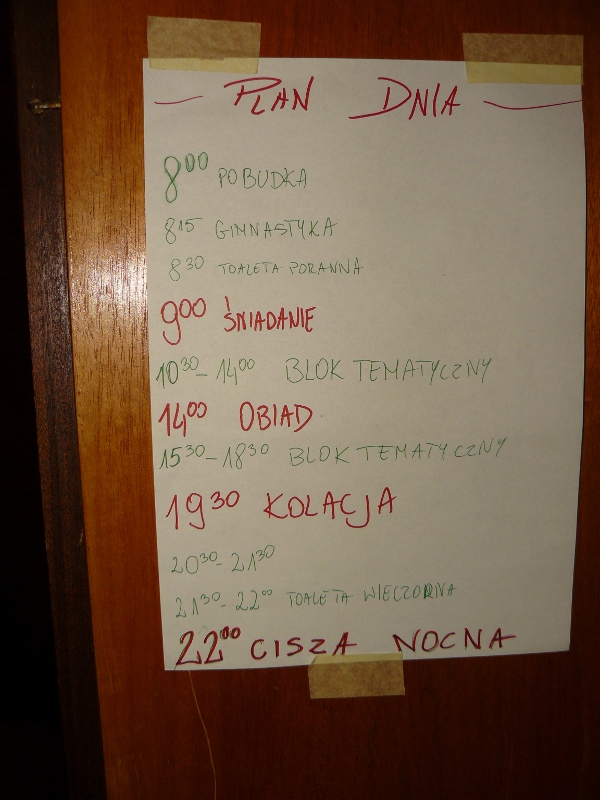 PLAN DNIA
8 00 POBUDKA
8 15 GIMNASTYKA
8 30 TOALETA PORANNA
9 00 ŚNIADANIE
10 30 - 14 00 BLOK TEMATYCZNY
14 00 OBIAD
15 30 - 18 30 BLOK TEMATYCZNY
19 30 KOLACJA
20 30 - 21 30
21 30 - 22 00 TOALETA WIECZORNA
22 00 CISZA NOCNA